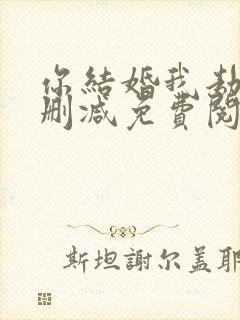 你結婚我劫
删减免費閱
斯坦謝尔盖耶